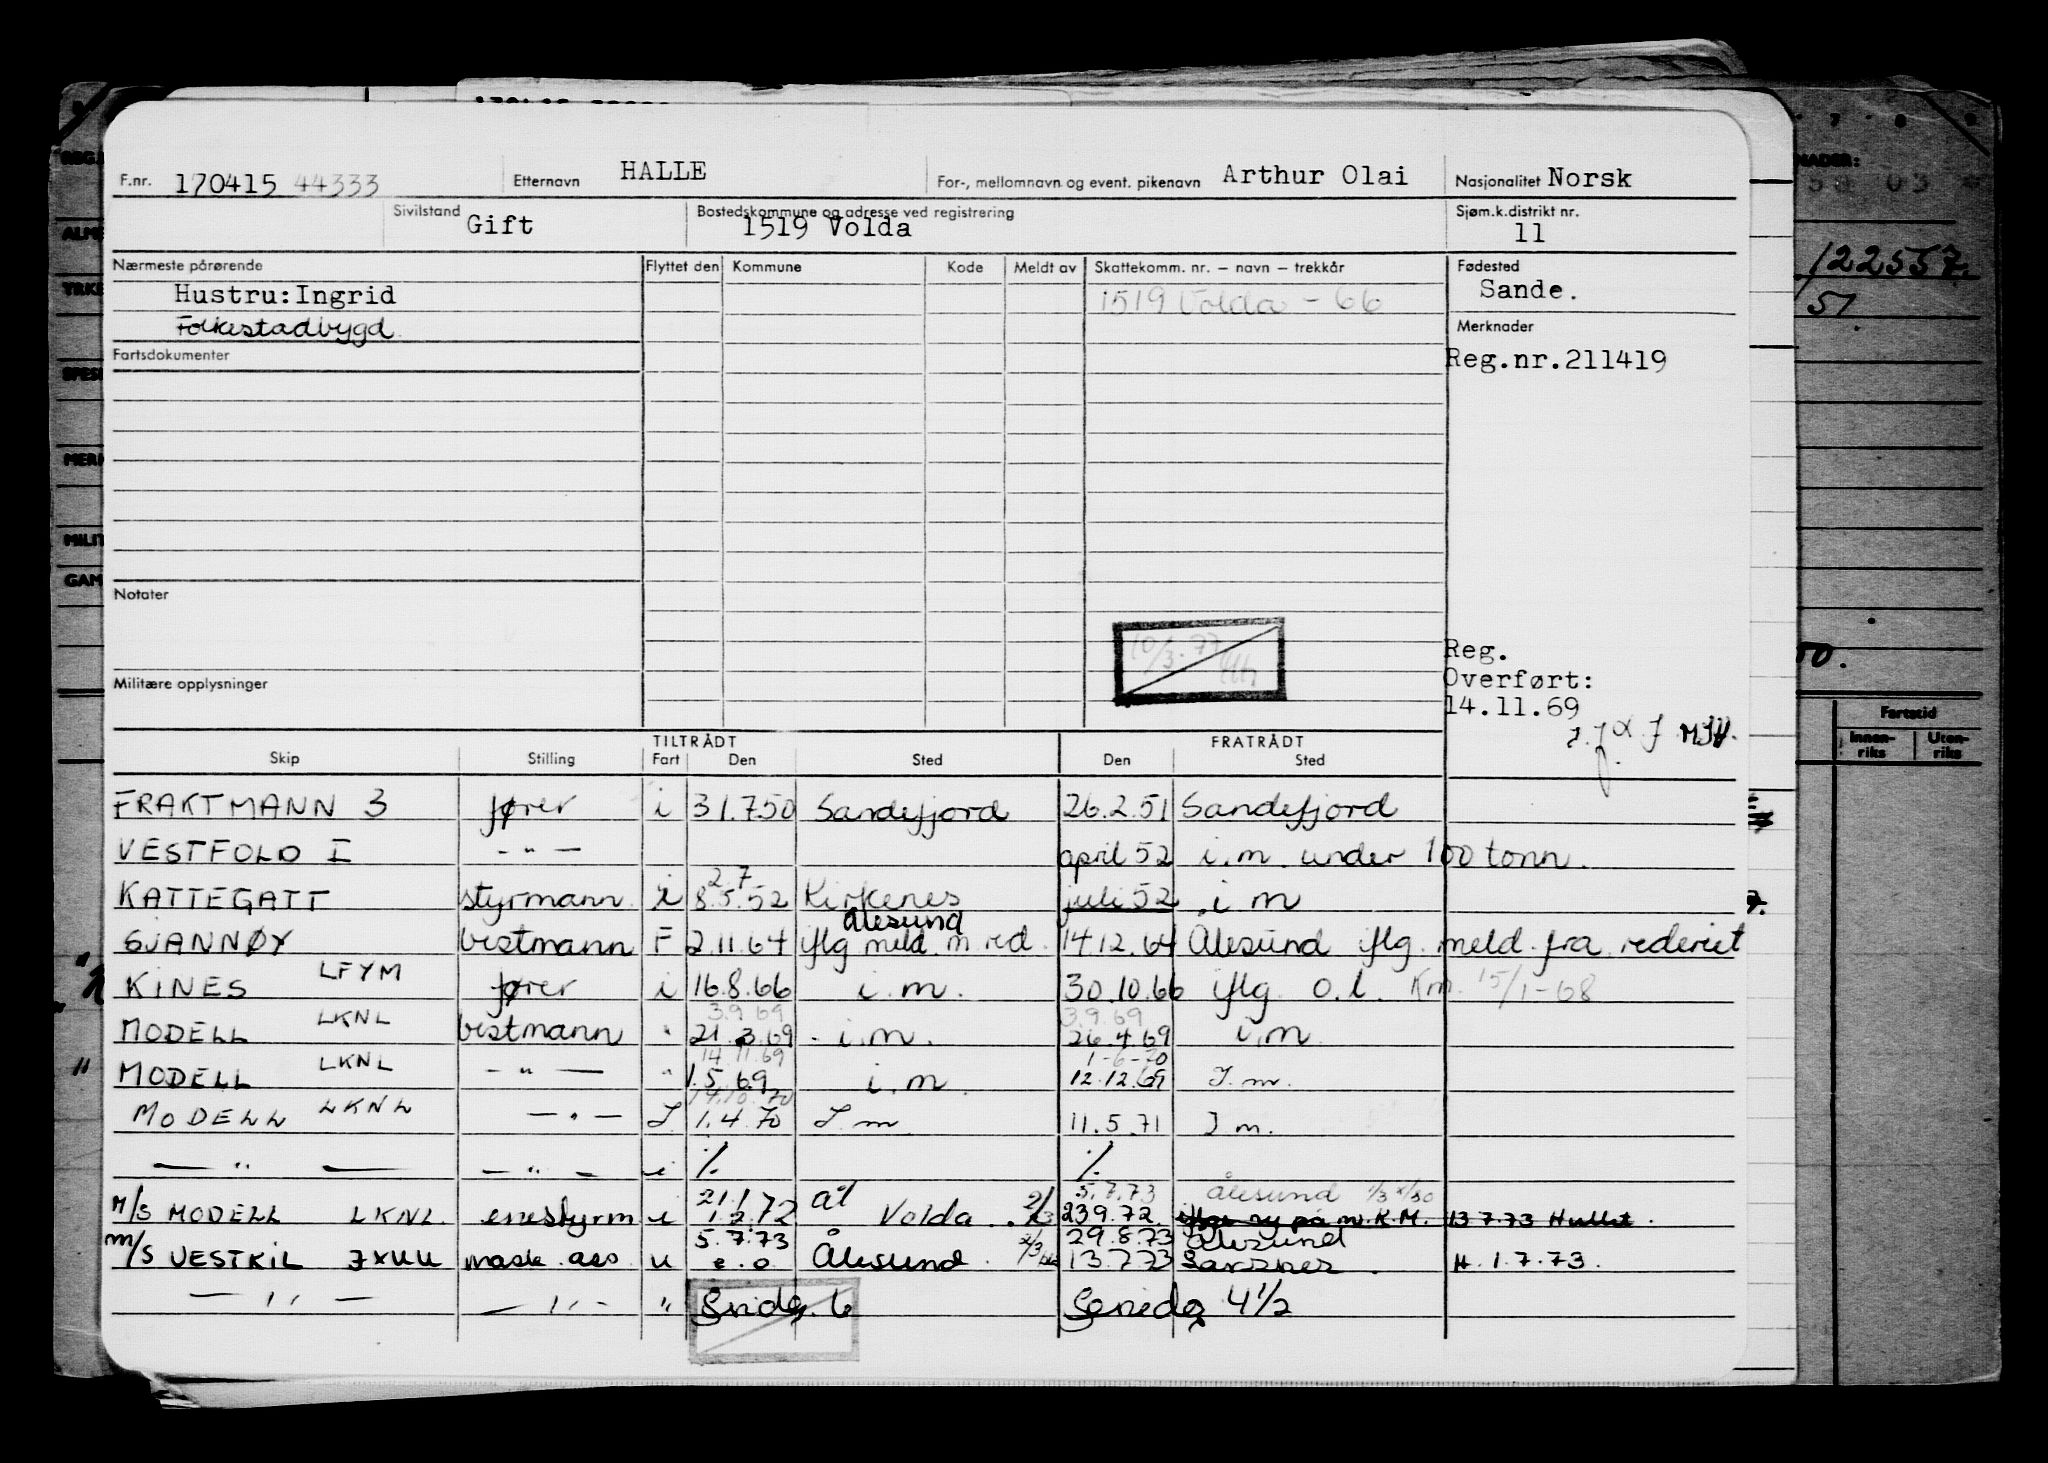 F.nr. 170415 44333 Etternavn HALLE For-, mellomnavn og event. pikenavn Arthur Olai Nasjonalitet Norsk
Sivilstand Gift Bostedskommune og adresse ved registrering 1519 Volda Sjøm.k.distrikt nr. 11
Nærmeste pårørende Flyttet den Kommune Kode Meldt av Skattekomm. nr. – navn – trekkår Fødested
Hustru: Ingrid 1519 Volda - 66 Sande.
Folkestadbygd Merknader
Fartsdokumenter Reg.nr.211419
Notater
Reg.
10/3.77
Overført:
Militære opplysninger
14.11.69
TILTRÅDT FRATRÅDT
Skip Stilling Fart Den Sted Den Sted
FRAKTMANN 3 fører i 31.7.50 Sandefjord 26.2.51 Sandefjord
VESTFOLD I - " - april 52 i.m. under 100 tonn.
2.7
KATTEGATT styrmann i 8.5.52 Kirkenes juli 52 i m
Ålesund
GJANNØY bestmann F 2.11.64 iflg meld. m red. 14.12.64 Ålesund iflg. meld. fra rederiet
KINES LFYM fører i 16.8.66 i.m. 30.10.66 iflg o.l. Km. 15/1-68
3.9.69 3.9.69
MODELL LKNL bestmann " 21.3.69 i.m. 26.4.69 i.m
14.11.69 1-6-70
MODELL LKNL - " - " 1.5.69 i.m 12.12.69 I.m.
14.10.70
MODELL LKNL - " - I 1.4.70 I.m 11.5.71 I.m.
- " - - " - i % %
21/1 72 5.7.73 Ålesund
M/S MODELL LKNL. enestyrm i 1.2.72 Volda 23.9.72. 13.7.73
5.7.73 29.8.73 Ålesund
M/S VESTKIL JXUU mask. ass u e.o. Ålesund 13.7.73 H. 1.7.73.
- " - - " - " 6 4½
122557.
51.
Fartstid
Innen-
riks
Uten-
riks